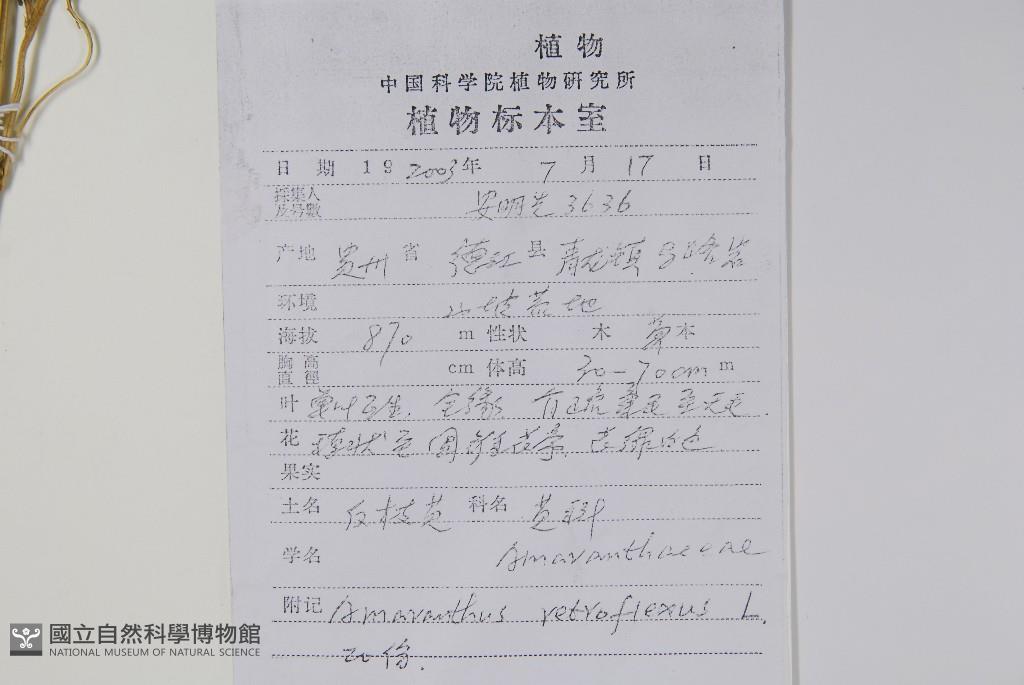 植物
中国科学院植物研究所
植物标本室
日期 19 2003年 7月 17 日
採集人及号數 安明先 3636
产地 贵州 省 德江 县 青龙镇
环境 山坡荒地
海拔 870 m 性状 木 草本
胸高直徑 cm 体高 30-70cm m
叶 单叶互生. 全缘
花 穗状 圆锥花序,
果实
土名 反枝苋 科名 苋科
学名 Amaranthaceae
附记 Amaranthus retroflexus L.
20份.
國立自然科學博物館
NATIONAL MUSEUM OF NATURAL SCIENCE